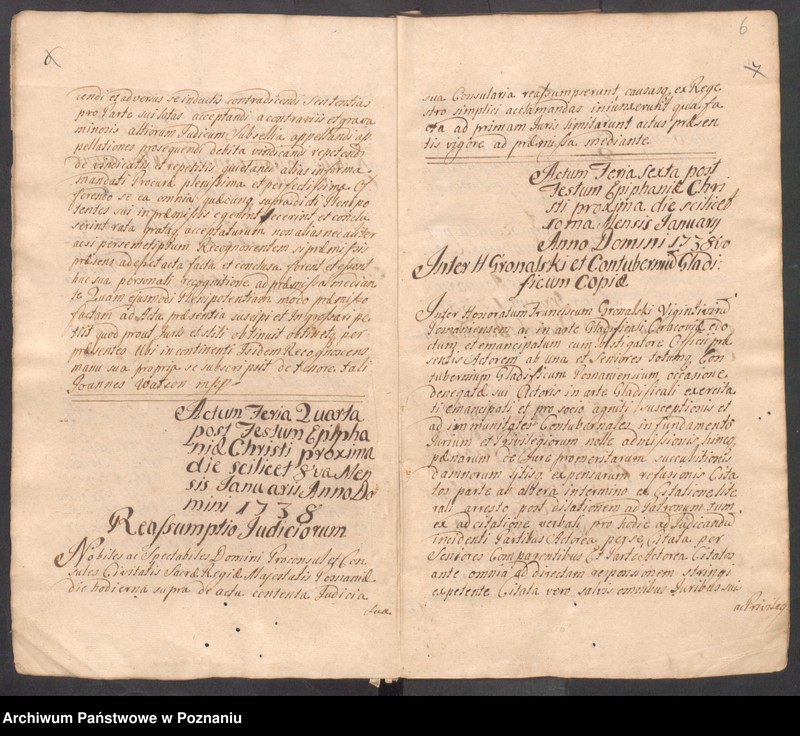 6
cendi et adversus se inductis contradicendi Sententias
pro Parte sui latas acceptandi a contrariis et grava
minosis altiorum Judicium Subsellia appellandi ap
pellationes prosequendi debita vindicandi repetendi
de vindicatis et repetitis quietandi alias in forma
mandati Procuræ plenissima et perfectissima Of
ferendo se ea omnia quæcunq supradicti Plenipo
tentes sui in præmissis egerint fecerint et conclu
serint rata grata accepturum non alias nec aliter
ac si per semetipsum Recognoscentem si præmissis
præsens adesset acta facta et conclusa forent et essent
hac sua personali recognitione ad præmissa median
te Quam ejusmodi Plenipotentiam modo præmisso
factam ad Acta præsentia suscipi et Ingrossari pe
tiit quod prout Juris et stili obtinuit obtinetq per
præsentes Ubi in continenti Isdem Recognoscens
manu sua propria se subscripsit de tenore tali
Joannes Watson mpp
Actum Feria Quarta
post Festum Epipha
niæ Christi proxima
die scilicet 8va Men
sis Januarii Anno Do
mini 1738
Reassumptio Judiciorum
Nobiles ac Spectabiles Domini Proconsul et Con
sules Civitatis Sacræ Regiæ Majestatis Posnaniæ
die hodierna supra de actu contenta Judicia
sua
6
7
sua Consularia reassumpserunt causasq ex Rege
stro simplici acclamandas iniunxerunt qua fa
cta ad primam Juris limitarunt actus præsen
tis vigore ad præmissa mediante
Actum Feria Sexta post
Festum Epiphaniæ Chri
sti proxima die scilicet
10ma Mensis January
Anno Domini 1738vo
Inter H Gronalski et Contubernium Gladi
ficum Copiæ
Inter Honoratum Franciscum Gronalski Vigintivirum
Posnaniensem ac in arte Gladificali Cracoviæ edo
ctum et emancipatum cum Instigatore Officii præ
sentis Actorem ab una et Seniores totumq Con
tubernium Gladificum Posnaniensium occasione
denegatæ sui Actoris in arte Gladificali exercita
ti emancipati et pro socio agniti Susceptionis et
ad immunitates Contubernales in fundamento
Jurium et Privilegiorum nolle admissionis hincq
pænarum de Jure promeritarum succubitionis
damnorum litisq expensarum refusionis Cita
tos parte ab altera in termino ex Citatione lite
rali arresto post dilationem ad Patronum tum
ex ad citatione verbali pro hodie ad Judicandum
incidenti Partibus Actorea per se Citata per
Seniores Comparentibus Et Parte Actorea Citatos
ante omnia ad directam responsionem stringi
expetente Citata vero salvis omnibus Juribus suis
ac Privileg
Archiwum Państwowe w Poznaniu